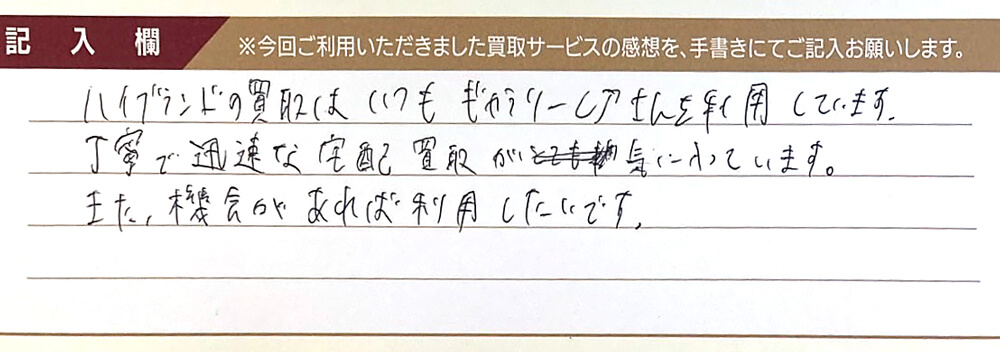 記入欄
※今回ご利用いただきました買取サービスの感想を、手書きにてご記入お願いします。
ハイブランドの買取はいつもギャラリーレアさんを利用しています。
丁寧で迅速な宅配買取が気に入っています。
また、機会があれば利用したいです。